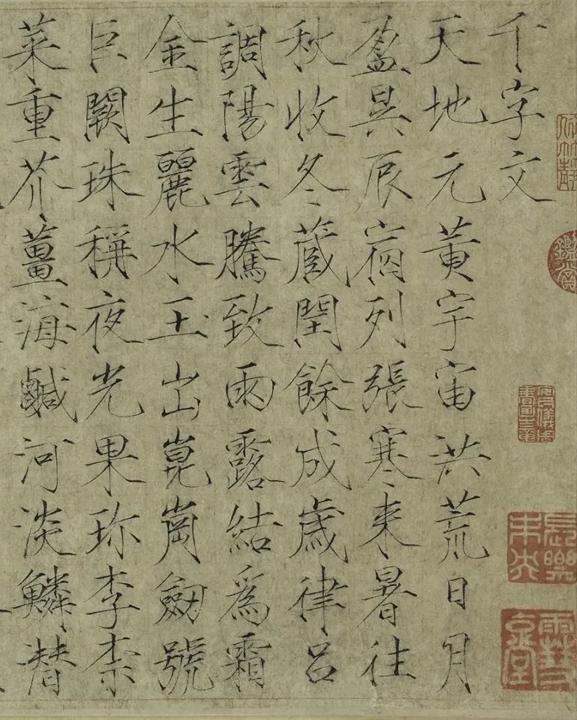 鑑賞
長樂未央
千字文
天地元黃宇宙洪荒日月
盈昃辰宿列張寒来暑往
秋收冬蔵閏餘成歲律呂
調陽雲騰致雨露結爲霜
金生麗水玉出崑崗劔號
巨闕珠稱夜光果珎李柰
菜重芥薑海鹹河淡鱗潛